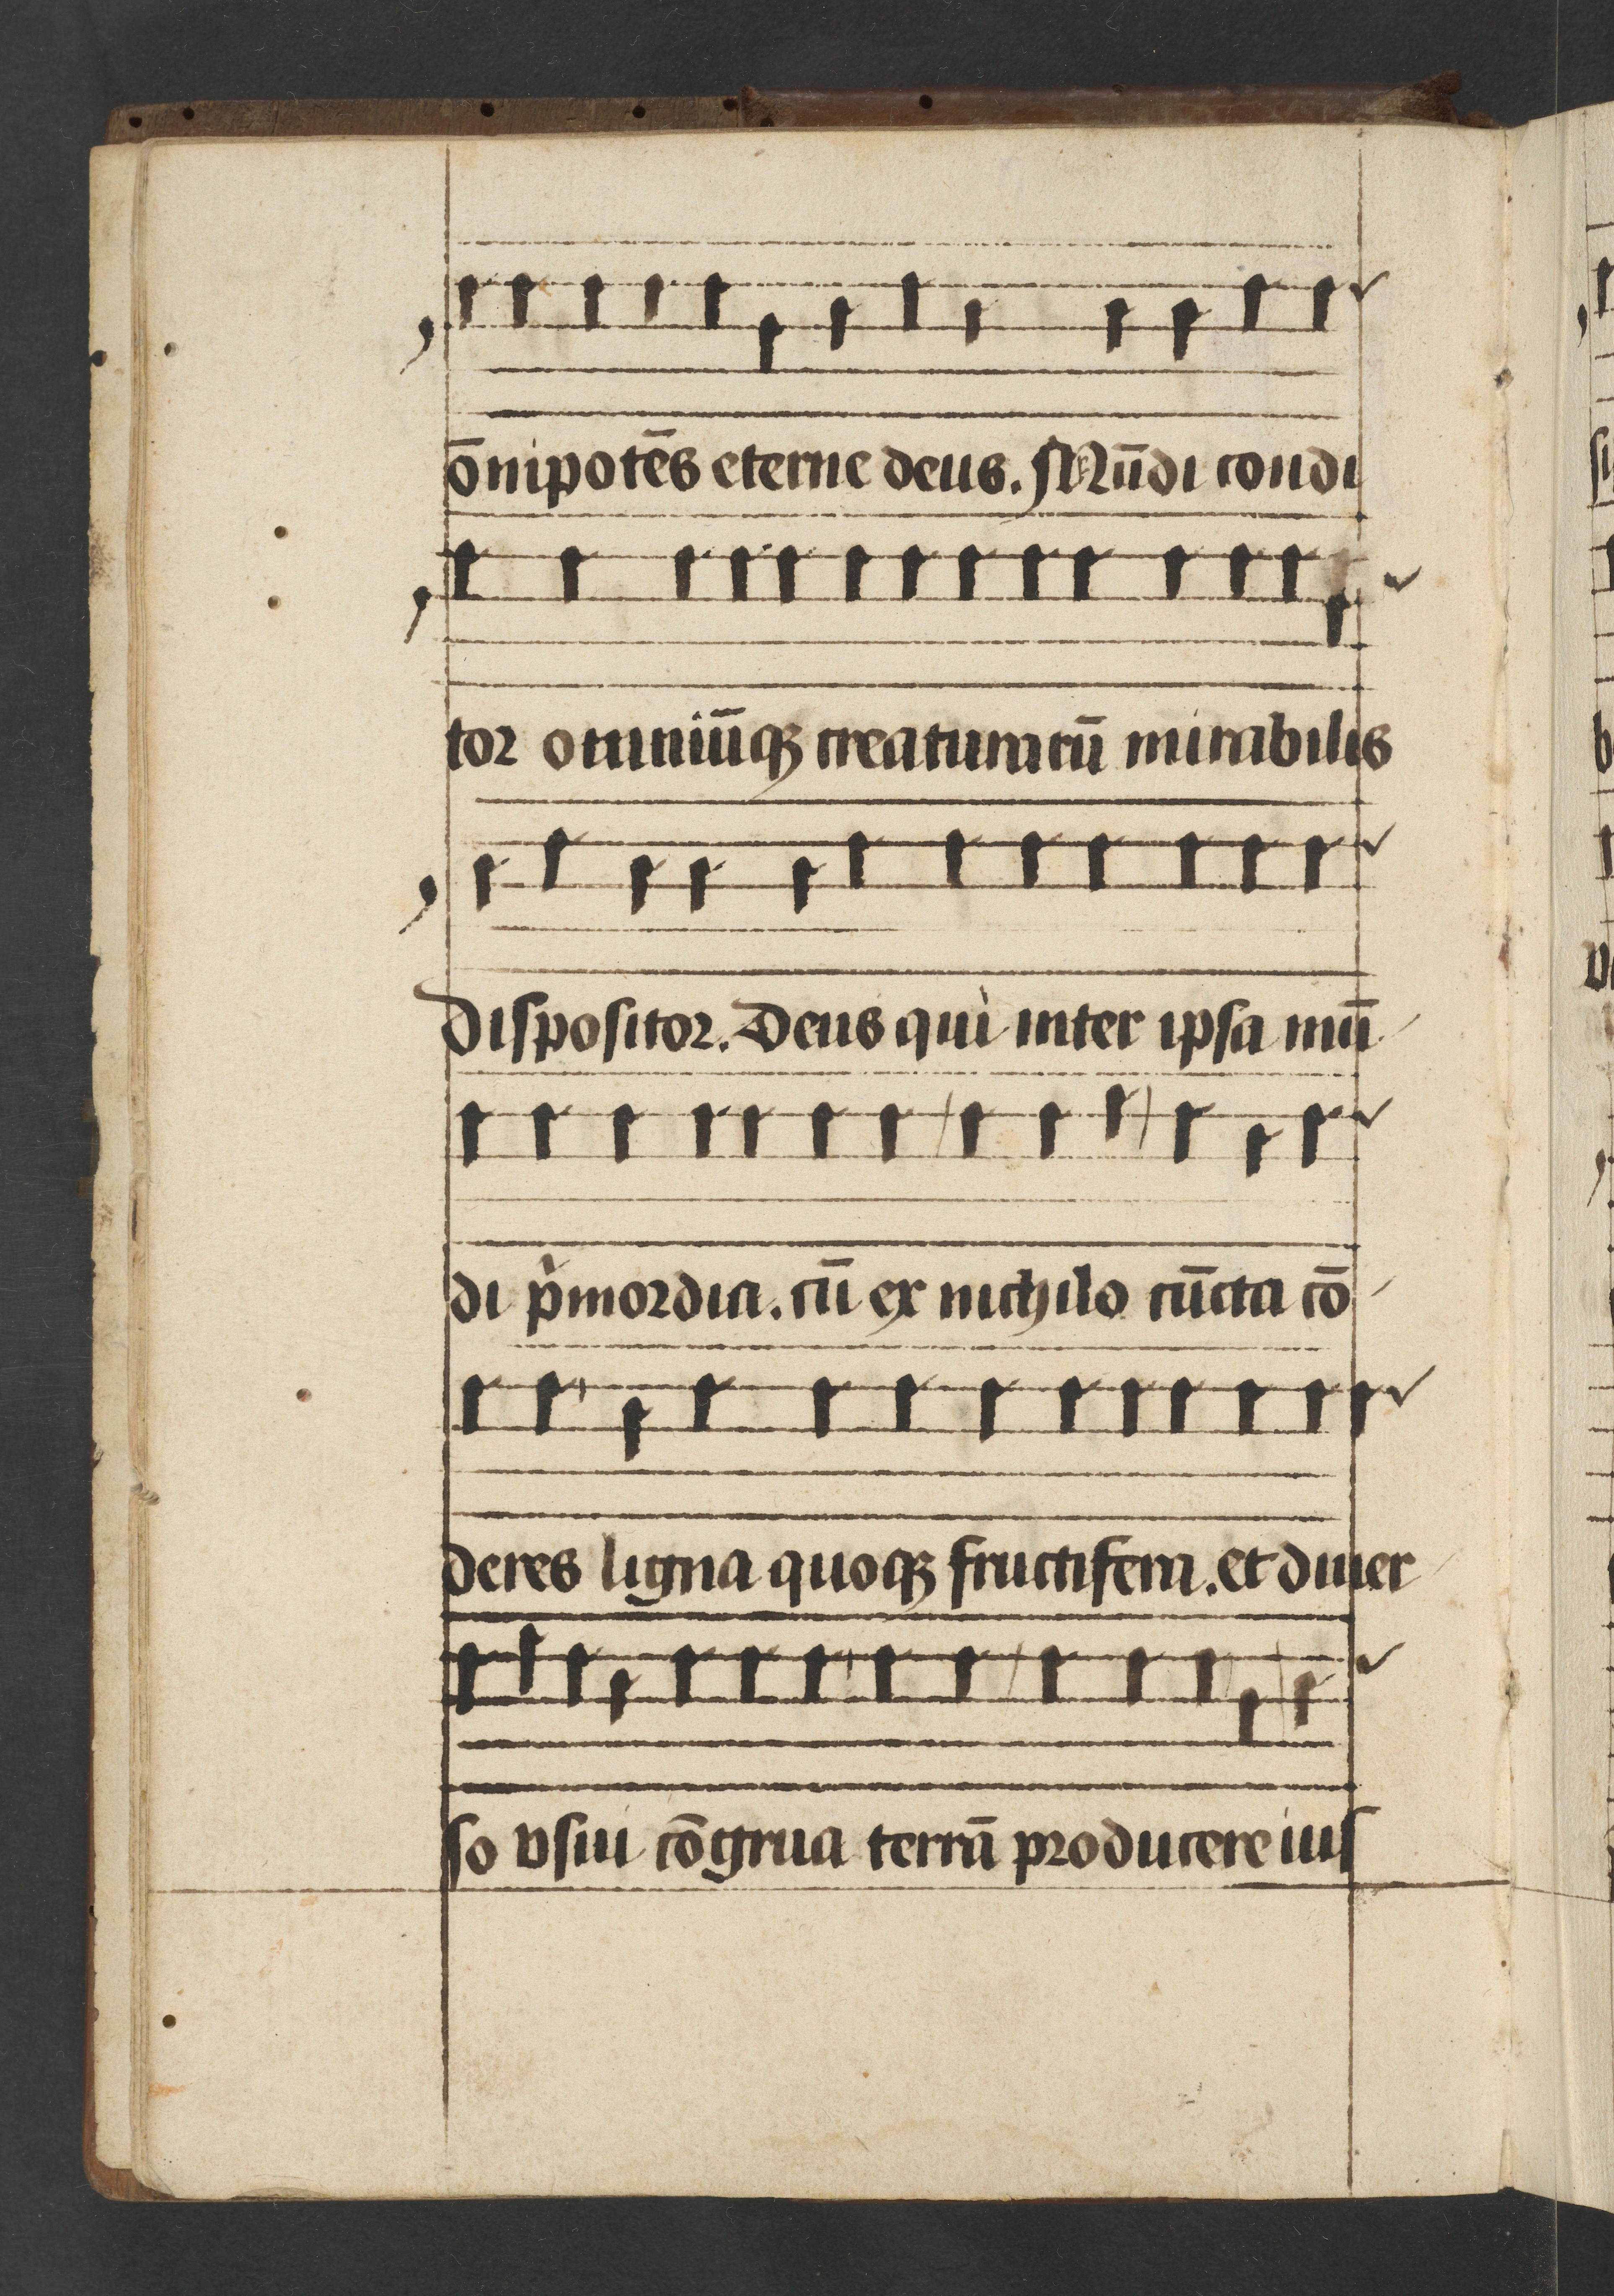 o̅nipote̅s eterne deus. Mu̅di condi
tor omniu̅qꝫ creaturaru̅ mirabilis
dispositor. Deus qui inter ipsa mu̅
di pͥmordia. cu̅ ex nichilo cu̅cta co̅
deres ligna quoqꝫ fructifera. et diuer
so vsui co̅grua terra̅ producere iuſ